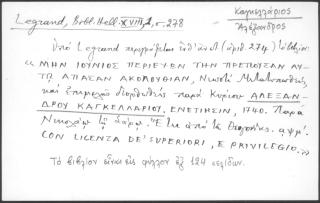 Legrand, Bibl. Hell. XVIII, 1, σ. 278
Καγκελλάριος
Ἀλέξανδρος
Ὑπὸ Legrand περιγράφεται ὑπ' ἀν. (ἀριθ. 274)
"ΜΗΝ ΙΟΥΝΙΟΣ ΠΕΡΙΕΧΩΝ ΤΗΝ ΠΡΕΠΟΥΣΑΝ ΑΥ-
Τῼ ΑΠΑΣΑΝ ΑΚΟΛΟΥΘΙΑΝ, Νεωστὶ Μετατυπωθεὶς
καὶ ἐπιμελῶς διορθωθεὶς παρὰ Κυρίου ΑΛΕΞΑΝ-
ΔΡΟΥ ΚΑΓΚΕΛΛΑΡΙΟΥ. ΕΝΕΤΙΗΣΙΝ, 1740. Παρὰ
Νικολάῳ τῷ Σάρῳ. Ἔτει ἀπὸ τῆς Θεογονίας. αψμ΄.
CON LICENZA DE' SUPERIORI, E PRIVILEGIO."
Τὸ βιβλίον εἶναι εἰς φύλλον ἐξ 124 σελίδων.